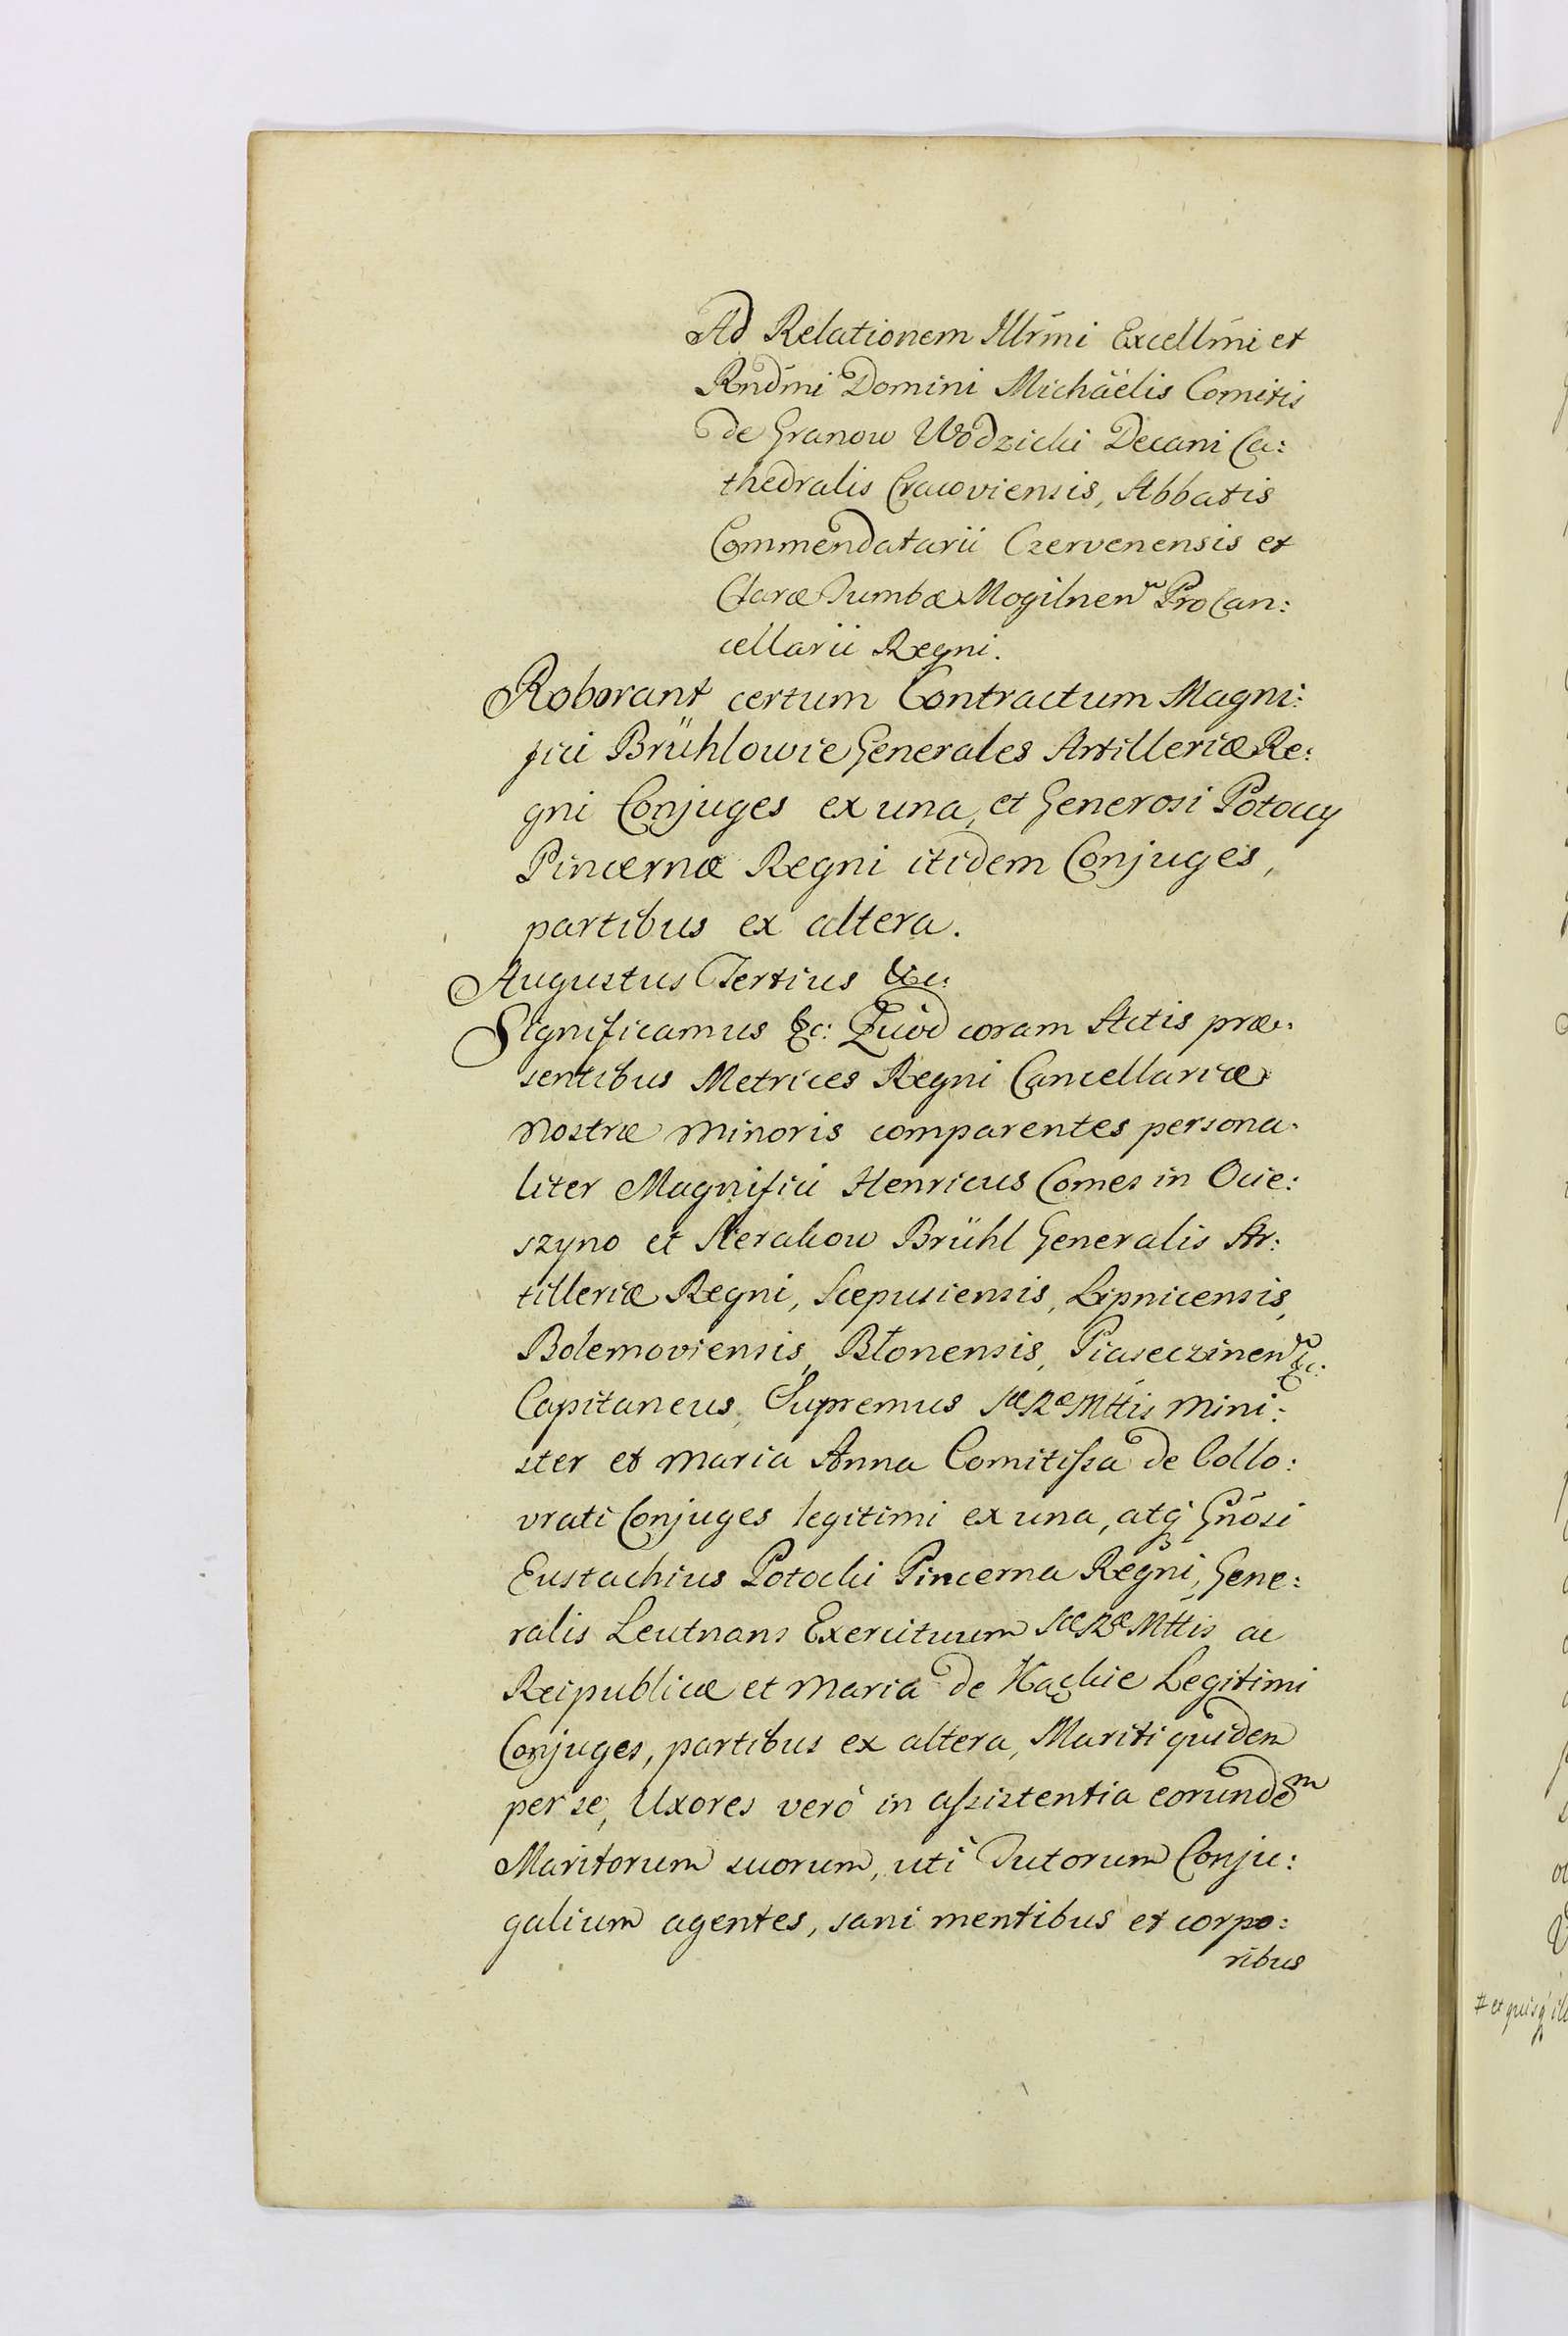 Ad Relationem Illrm̃i Excellm̃i et
Rndm̃i Domini Michäelis Comitis
de Granow Wodzicki Decani Ca:
thedralis Cracoviensis, Abbatis
Commendatarii Czervenensis et
Claræ Tumbæ Mogilnen Pro Can:
cellarii Regni.
Roborant certum Contractum Magni:
fici Brühlowie Generales Artilleriæ Re:
gni Conjuges ex una, et Generosi Potoccy
Pincernæ Regni itidem Conjuges,
partibus ex altera.
Augustus Tertius &c:
Significamus &c: Quod coram Actis præ:
sentibus Metrices Regni Cancellariæ
Nostræ Minoris comparentes persona:
liter Magnifici Henricus Comes in Ocie:
szyno et Brühl Generalis Ar:
tilleriæ Regni, Scepusiensis, Lipnicensis,
Bolemoviensis, Błonensis, Piaseczinen &c:
Capitaneus, Supremus Sæ Ræ Mttis Mini:
ster et Maria Anna Comitissa de Collo:
vrati Conjuges legitimi ex una, atq̃ Gnõsi
Eustachius Potocki Pincerna Regni, Gene:
ralis Leutnans Exercituum Sæ Ræ Mttis ac
Reipublicæ et Maria de Kąckie Legitimi
Conjuges, partibus ex altera, Mariti quidem
per se, Uxores verò in assistentia eorundem
Maritorum suorum, uti Tutorum Conju:
galium agentes, sani mentibus et corpo:
ribus
# et quisq̃